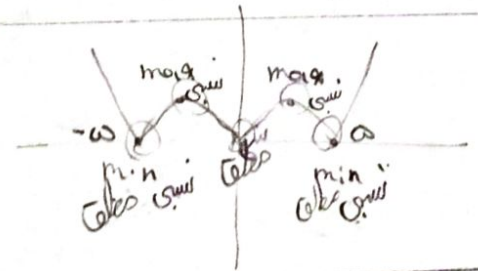 max
نسبی
max
نسبی
-۵
۵
min
نسبی
مطلق
مطلق
min
نسبی
مطلق